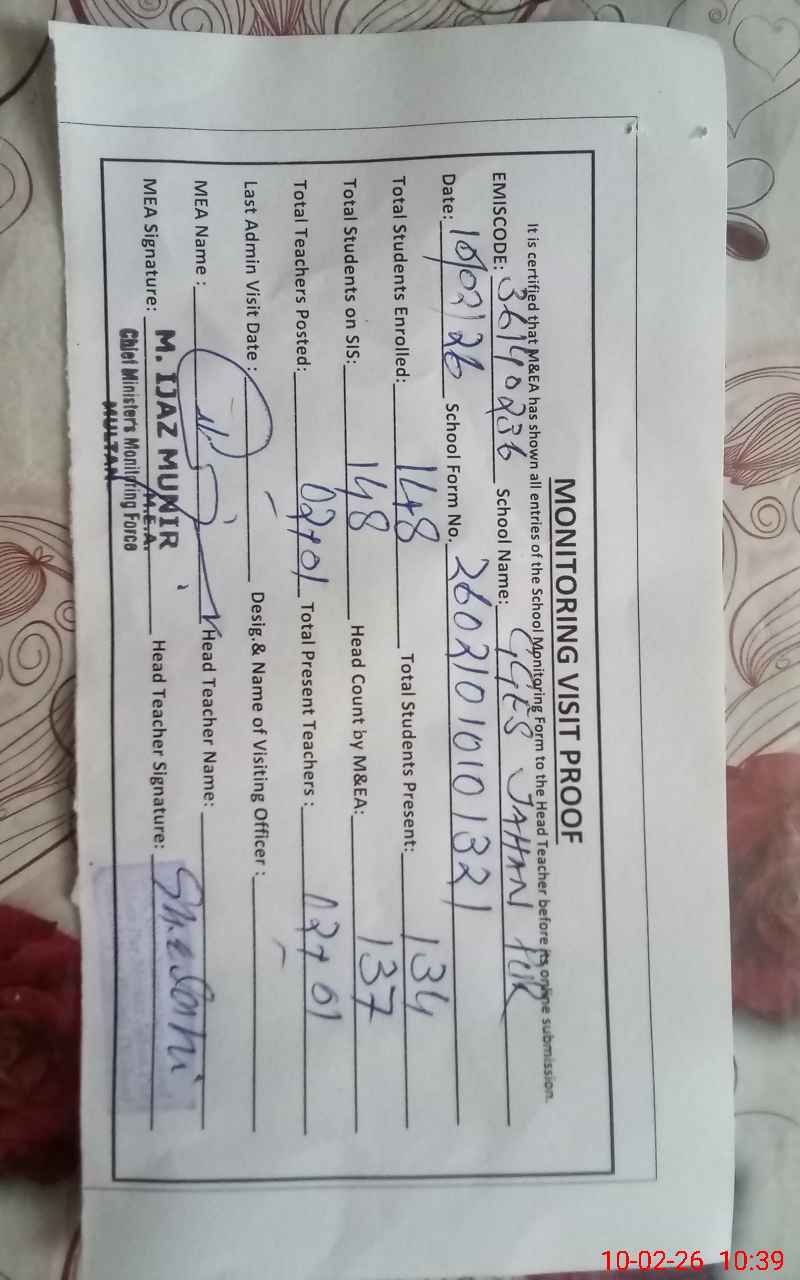 MONITORING VISIT PROOF
It is certified that M&EA has shown all entries of the School Monitoring Form to the Head Teacher before its online submission.
EMISCODE: 36140236 School Name: GGES JAHAN PUR
Date: 10/02/26 School Form No. 26021010101321
Total Students Enrolled: 148 Total Students Present: 134
Total Students on SIS: 148 Head Count by M&EA: 137
Total Teachers Posted: 02+01 Total Present Teachers : 02+01
Last Admin Visit Date : - Desig.& Name of Visiting Officer : -
MEA Name : Head Teacher Name:
MEA Signature: Head Teacher Signature:
M. IJAZ MUNIR
M.E.A.
Chief Minister's Monitoring Force
MULTAN
10-02-26 10:39